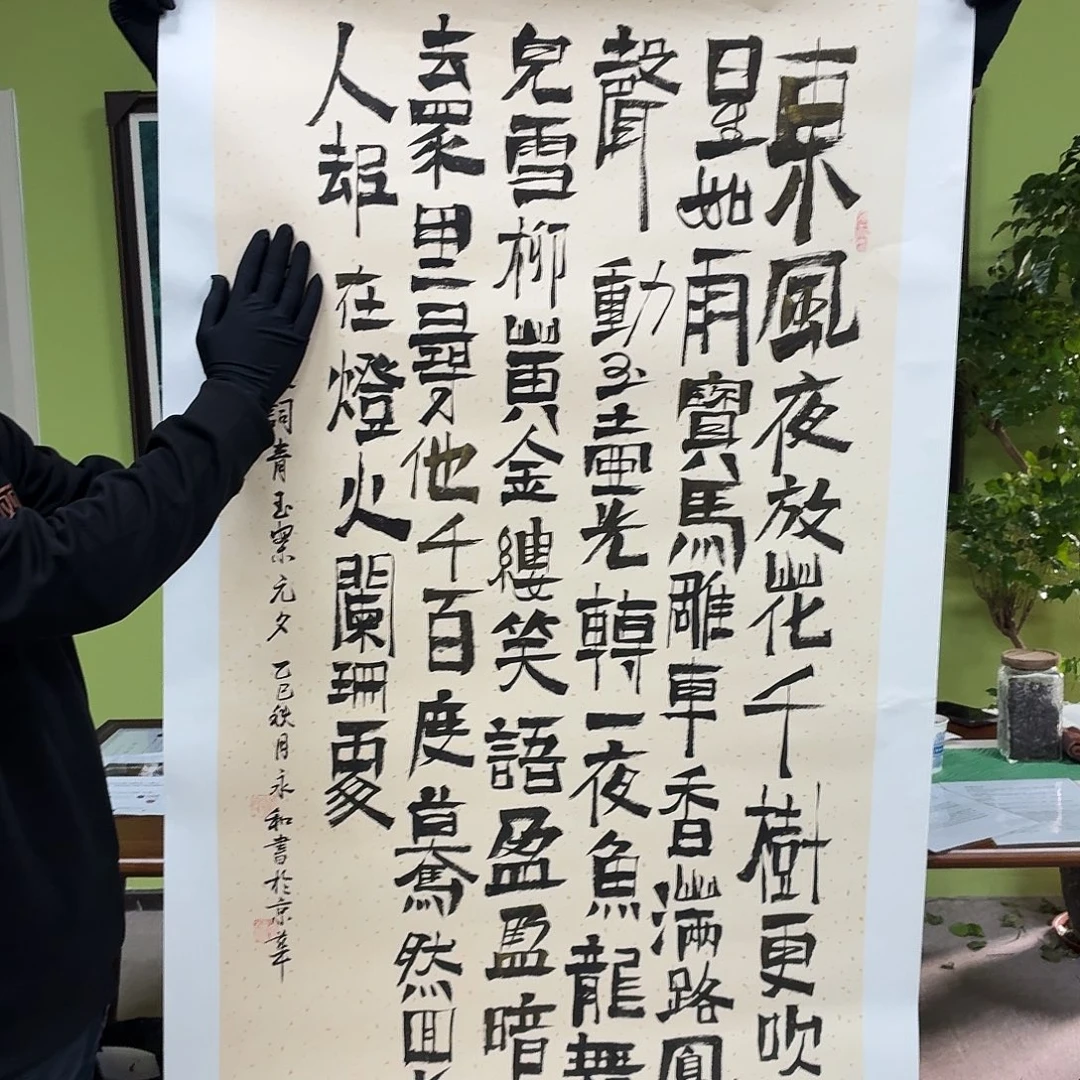 東風夜放花千樹更吹
星如雨寶馬雕車香滿路鳳
聲動玉壺光轉一夜魚龍舞
兒雪柳黃金縷笑語盈盈暗
去眾里尋他千百度驀然回
人却在燈火闌珊處
詞青玉案元夕 乙巳秋月永和書於京華